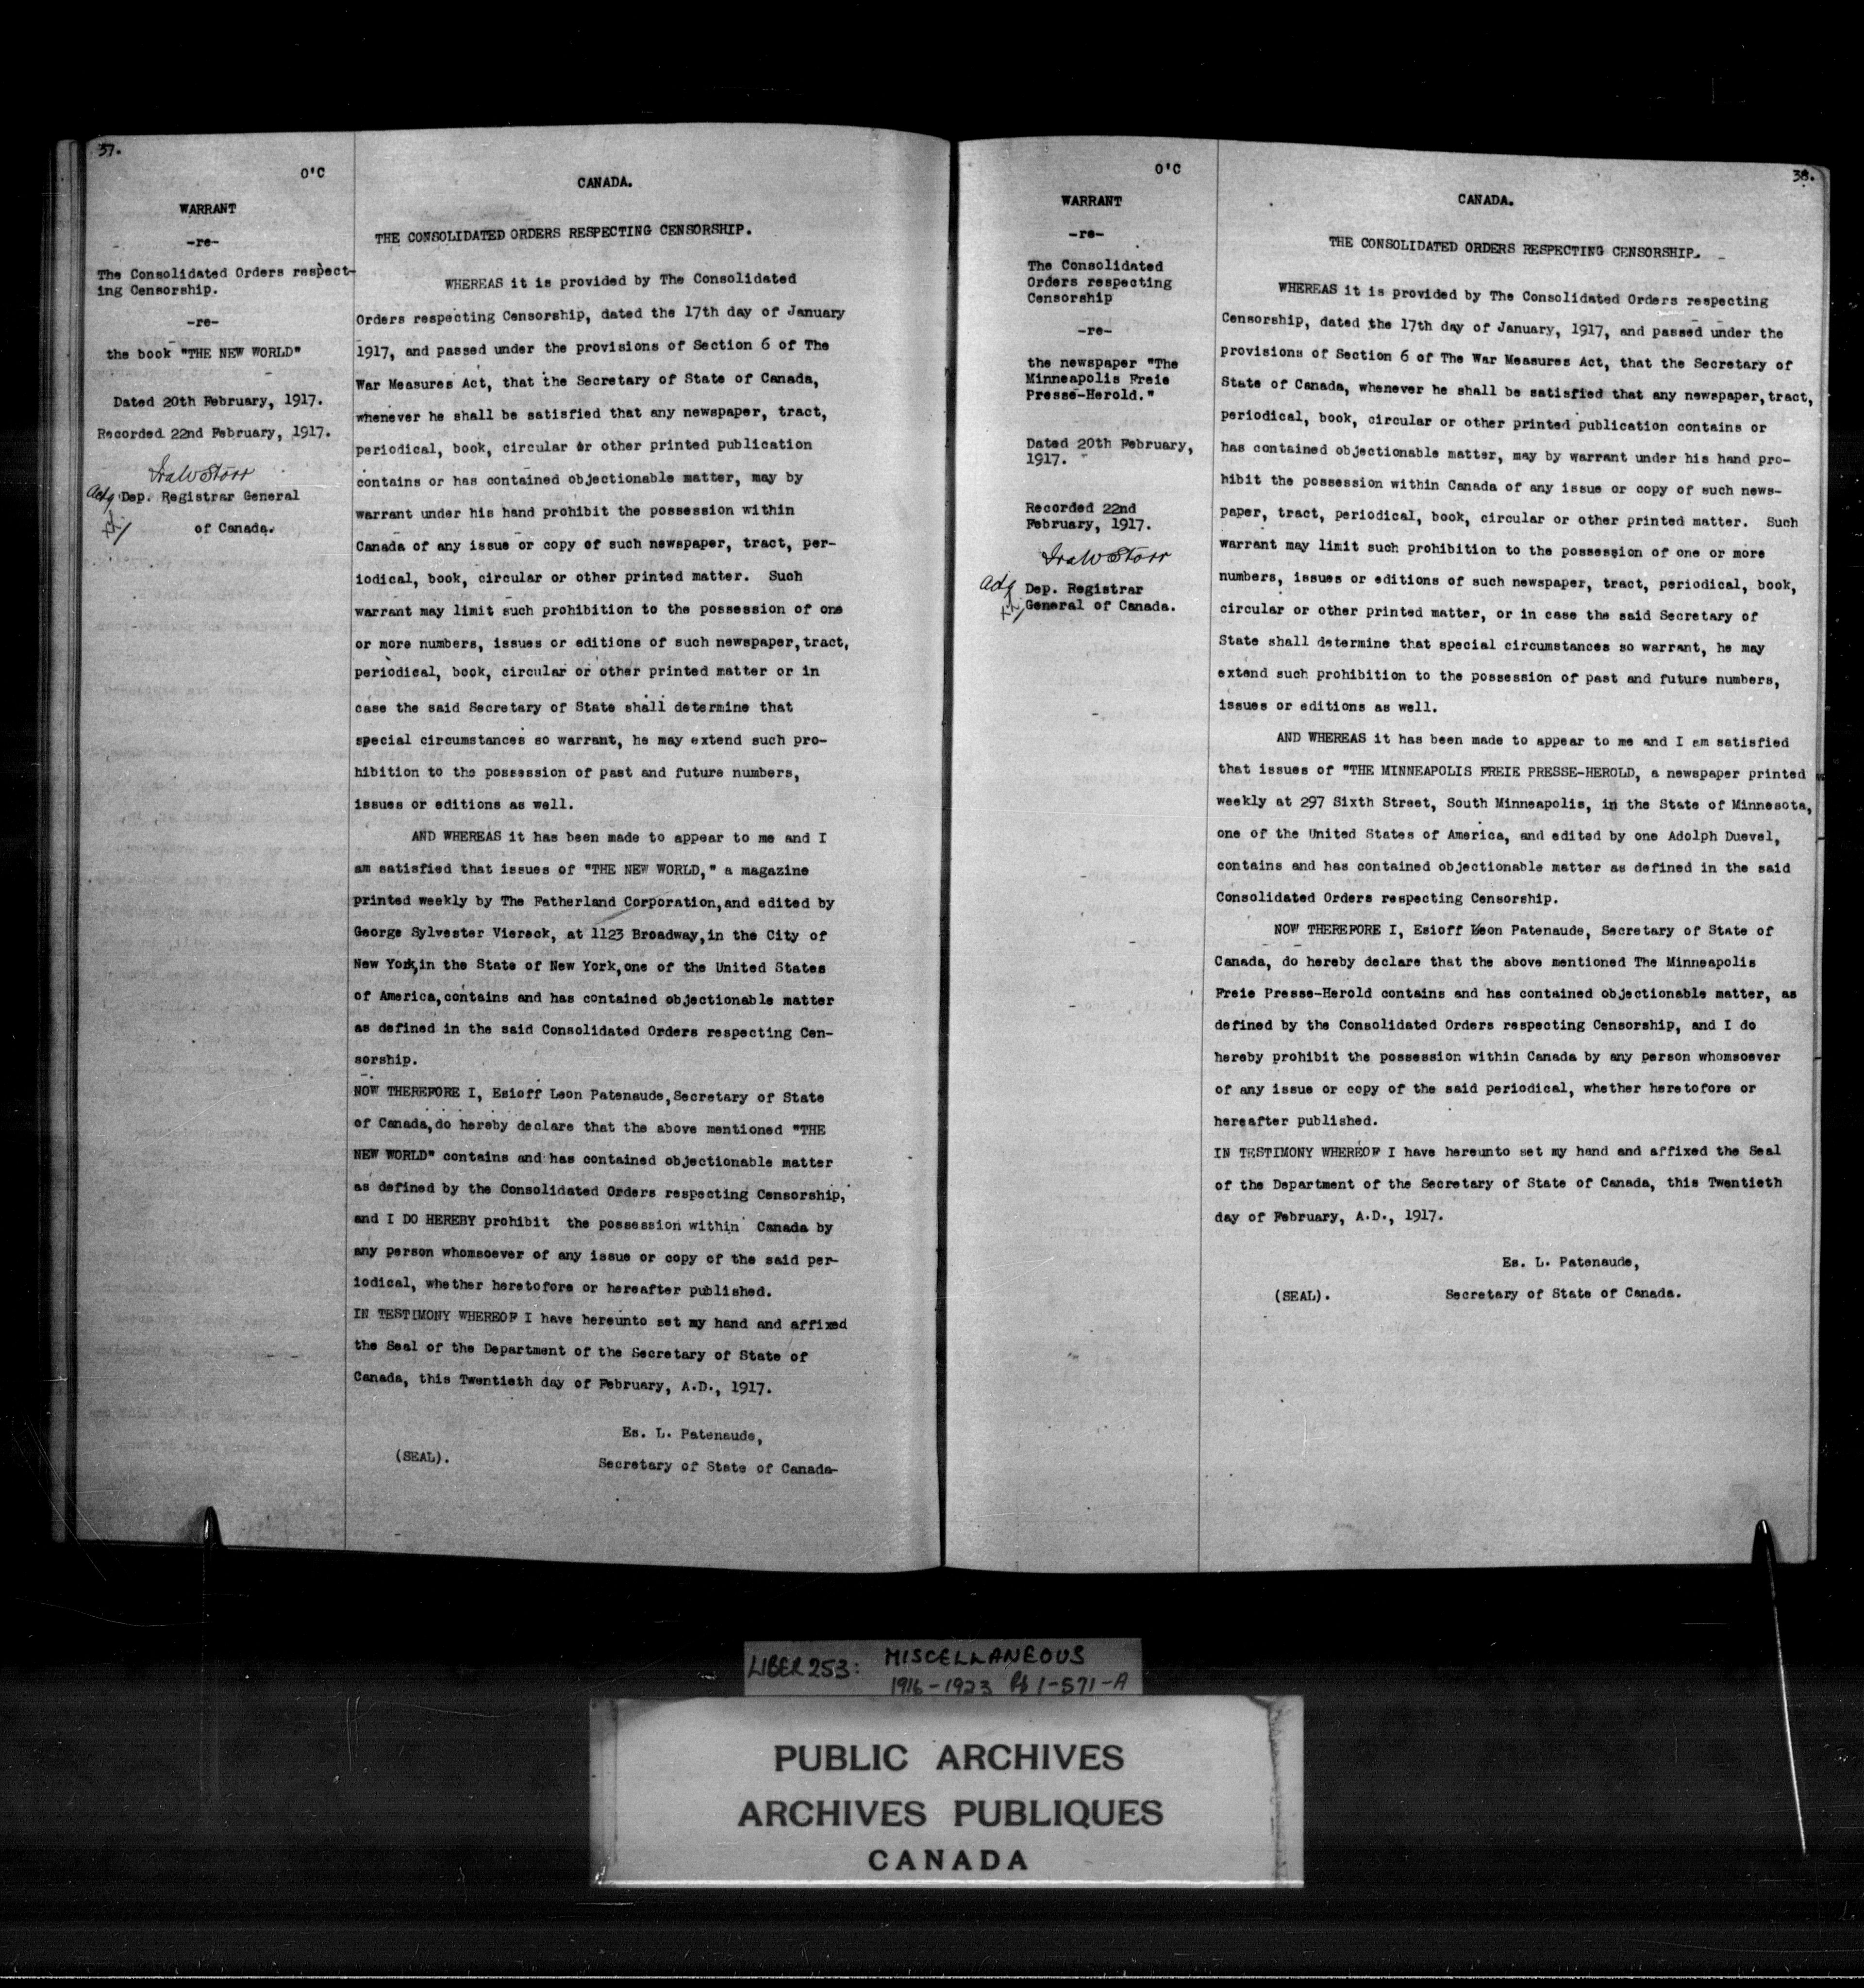 37.
O'C
WARRANT
-re-
The Consolidated Orders respect-
ing Censorship.
-re-
the book "THE NEW WORLD"
Dated 20th February, 1917.
Recorded 22nd February, 1917.
Ira W Storr
Actg Dep. Registrar General
of Canada.
CANADA.
THE CONSOLIDATED ORDERS RESPECTING CENSORSHIP.
WHEREAS it is provided by The Consolidated
Orders respecting Censorship, dated the 17th day of January
1917, and passed under the provisions of Section 6 of The
War Measures Act, that the Secretary of State of Canada,
whenever he shall be satisfied that any newspaper, tract,
periodical, book, circular or other printed publication
contains or has contained objectionable matter, may by
warrant under his hand prohibit the possession within
Canada of any issue or copy of such newspaper, tract, per-
iodical, book, circular or other printed matter. Such
warrant may limit such prohibition to the possession of one
or more numbers, issues or editions of such newspaper, tract,
periodical, book, circular or other printed matter or in
case the said Secretary of State shall determine that
special circumstances so warrant, he may extend such pro-
hibition to the possession of past and future numbers,
issues or editions as well.
AND WHEREAS it has been made to appear to me and I
am satisfied that issues of "THE NEW WORLD," a magazine
printed weekly by The Fatherland Corporation, and edited by
George Sylvester Viereck, at 1123 Broadway, in the City of
New York, in the State of New York, one of the United States
of America, contains and has contained objectionable matter
as defined in the said Consolidated Orders respecting Cen-
sorship.
NOW THEREFORE I, Esioff Leon Patenaude, Secretary of State
of Canada, do hereby declare that the above mentioned "THE
NEW WORLD" contains and has contained objectionable matter
as defined by the Consolidated Orders respecting Censorship,
and I DO HEREBY prohibit the possession within Canada by
any person whomsoever of any issue or copy of the said per-
iodical, whether heretofore or hereafter published.
IN TESTIMONY WHEREOF I have hereunto set my hand and affixed
the Seal of the Department of the Secretary of State of
Canada, this Twentieth day of February, A.D., 1917.
Es. L. Patenaude,
(SEAL). Secretary of State of Canada-
38.
O'C
WARRANT
-re-
The Consolidated
Orders respecting
Censorship
-re-
the newspaper "The
Minneapolis Freie
Presse-Herold."
Dated 20th February,
1917.
Recorded 22nd
February, 1917.
Ira W Storr
Actg Dep. Registrar
General of Canada.
CANADA.
THE CONSOLIDATED ORDERS RESPECTING CENSORSHIP.
WHEREAS it is provided by The Consolidated Orders respecting
Censorship, dated the 17th day of January, 1917, and passed under the
provisions of Section 6 of The War Measures Act, that the Secretary of
State of Canada, whenever he shall be satisfied that any newspaper, tract,
periodical, book, circular or other printed publication contains or
has contained objectionable matter, may by warrant under his hand pro-
hibit the possession within Canada of any issue or copy of such news-
paper, tract, periodical, book, circular or other printed matter. Such
warrant may limit such prohibition to the possession of one or more
numbers, issues or editions of such newspaper, tract, periodical, book,
circular or other printed matter, or in case the said Secretary of
State shall determine that special circumstances so warrant, he may
extend such prohibition to the possession of past and future numbers,
issues or editions as well.
AND WHEREAS it has been made to appear to me and I am satisfied
that issues of "THE MINNEAPOLIS FREIE PRESSE-HEROLD, a newspaper printed
weekly at 297 Sixth Street, South Minneapolis, in the State of Minnesota,
one of the United States of America, and edited by one Adolph Duevel,
contains and has contained objectionable matter as defined in the said
Consolidated Orders respecting Censorship.
NOW THEREFORE I, Esioff Leon Patenaude, Secretary of State of
Canada, do hereby declare that the above mentioned The Minneapolis
Freie Presse-Herold contains and has contained objectionable matter, as
defined by the Consolidated Orders respecting Censorship, and I do
hereby prohibit the possession within Canada by any person whomsoever
of any issue or copy of the said periodical, whether heretofore or
hereafter published.
IN TESTIMONY WHEREOF I have hereunto set my hand and affixed the Seal
of the Department of the Secretary of State of Canada, this Twentieth
day of February, A.D., 1917.
Es. L. Patenaude,
(SEAL). Secretary of State of Canada.
LIBER 253: MISCELLANEOUS
1916-1923 Pp 1-571-A
PUBLIC ARCHIVES
ARCHIVES PUBLIQUES
CANADA